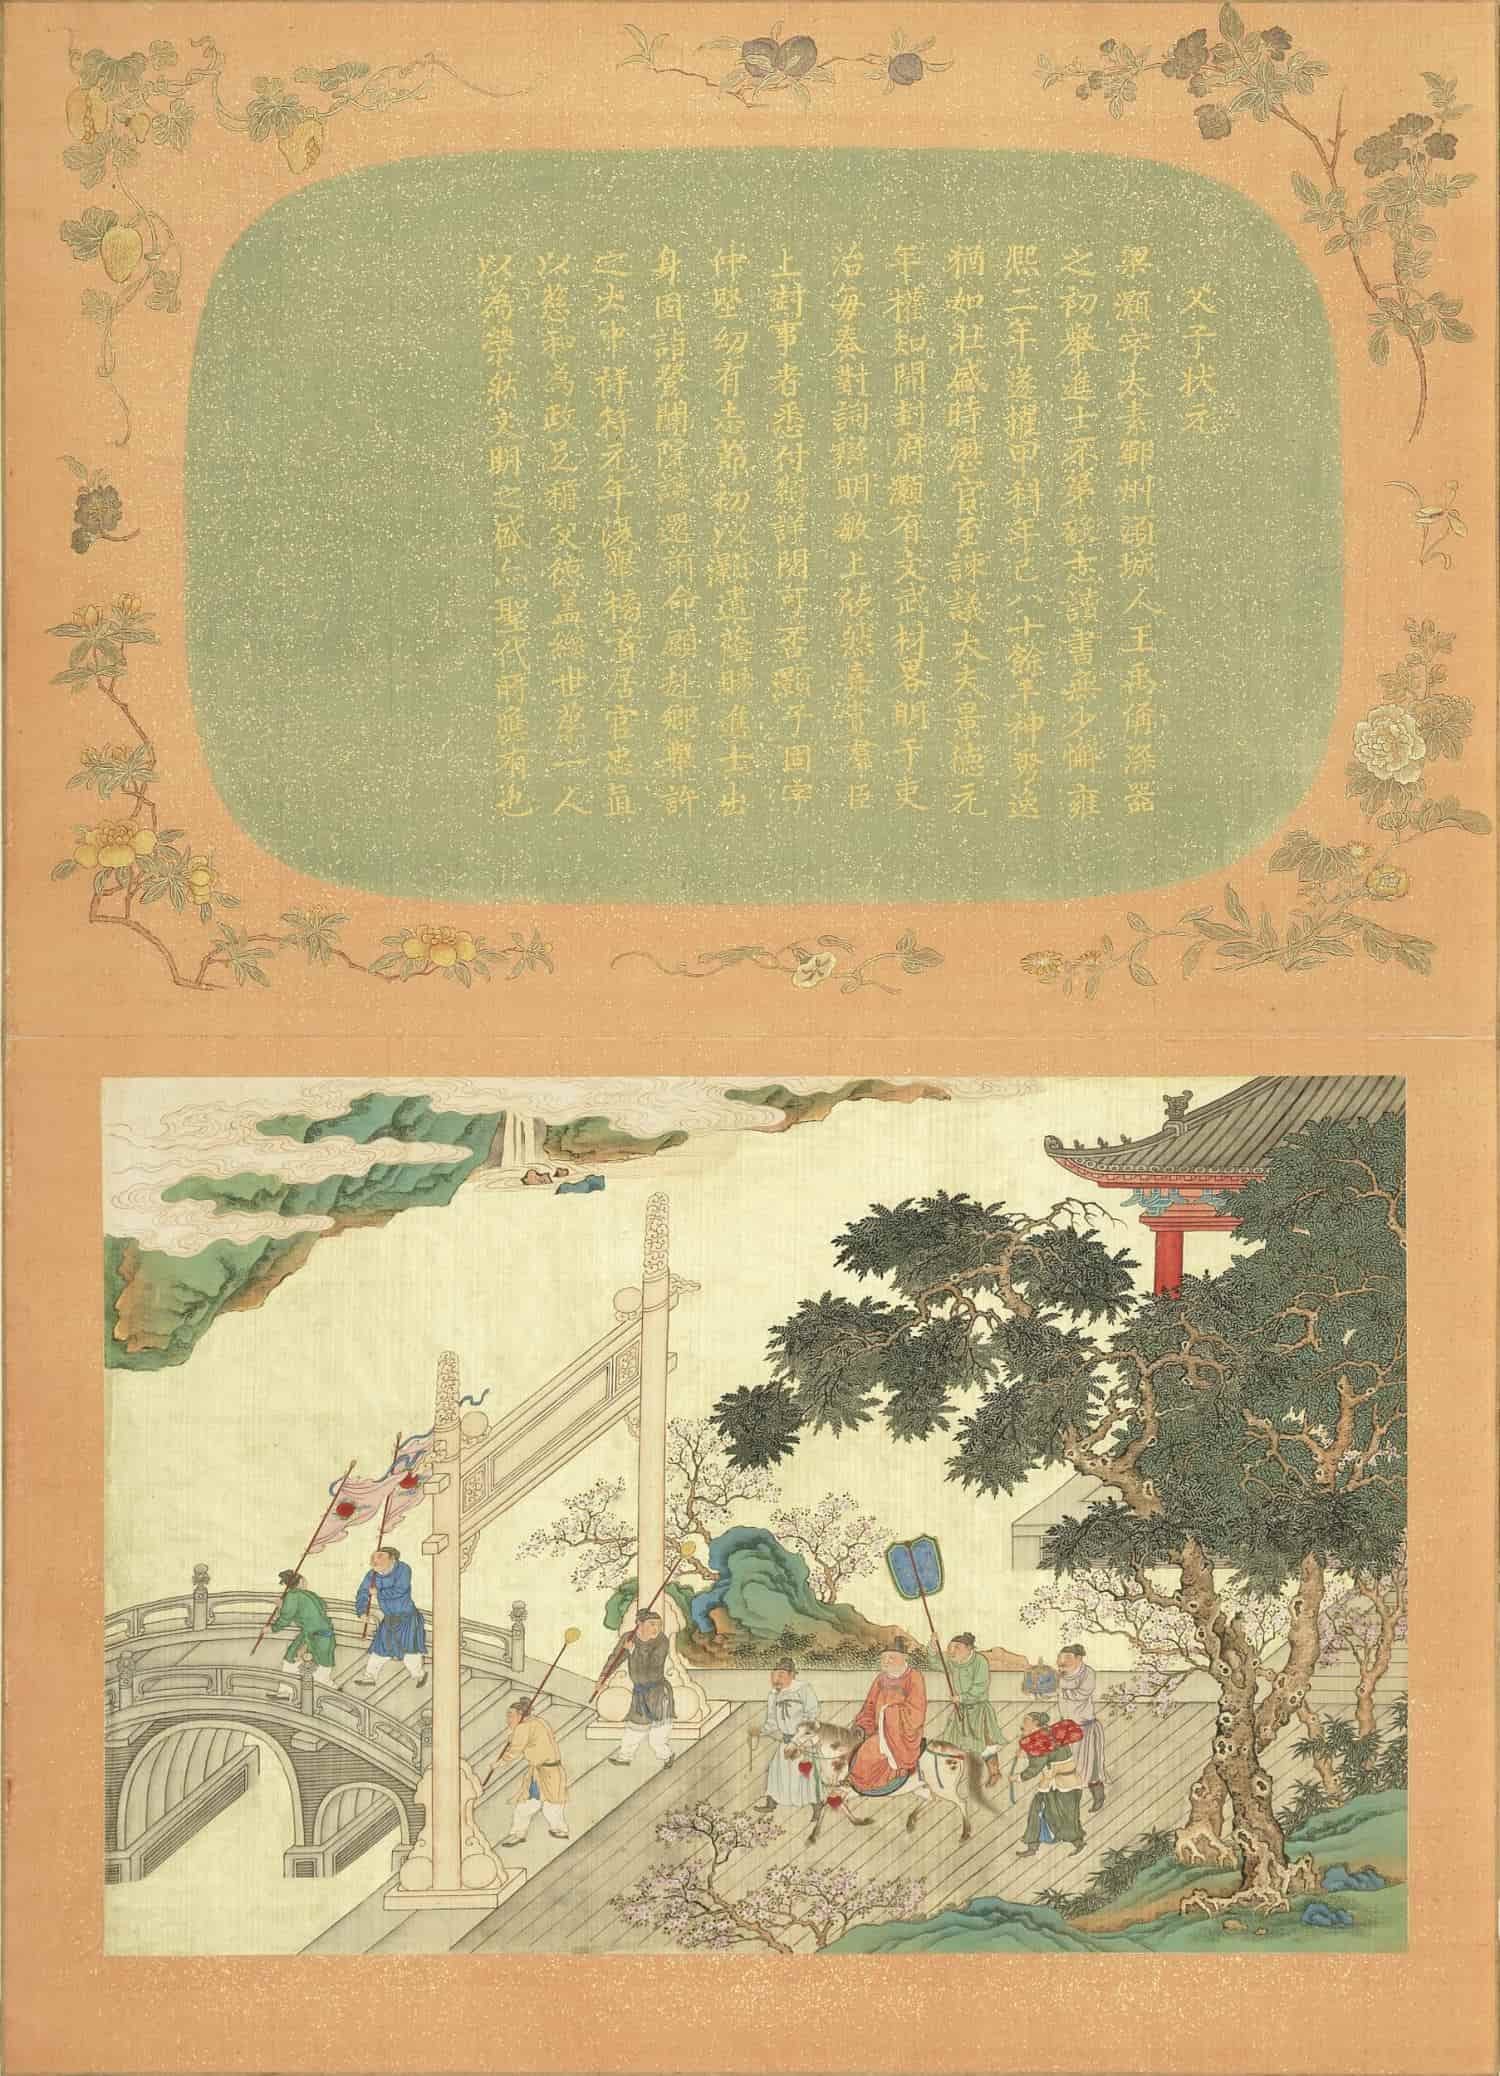 父子狀元
梁灝字太素鄆州須城人王禹偁深器
之初舉進士不第發志讀書無少懈雍
熙二年遂擢甲科年已八十餘平神努逸
猶如壯盛時歷官至諫議大夫景德元
年權知開封府灝有文武材畧明于吏
治每奏對詞辯明敏上欣然嘉賞羣臣
上封事者悉付灝詳閱可否灝子固字
仲堅幼有志節初以灝遺蔭賜進士出
身固詣登聞院讓還前命願赴鄉舉許
之大中祥符元年復舉榜首居官忠直
以慈和為政足稱父德盖繼世榮一人
以為榮然文明之盛亦聖代所應有也